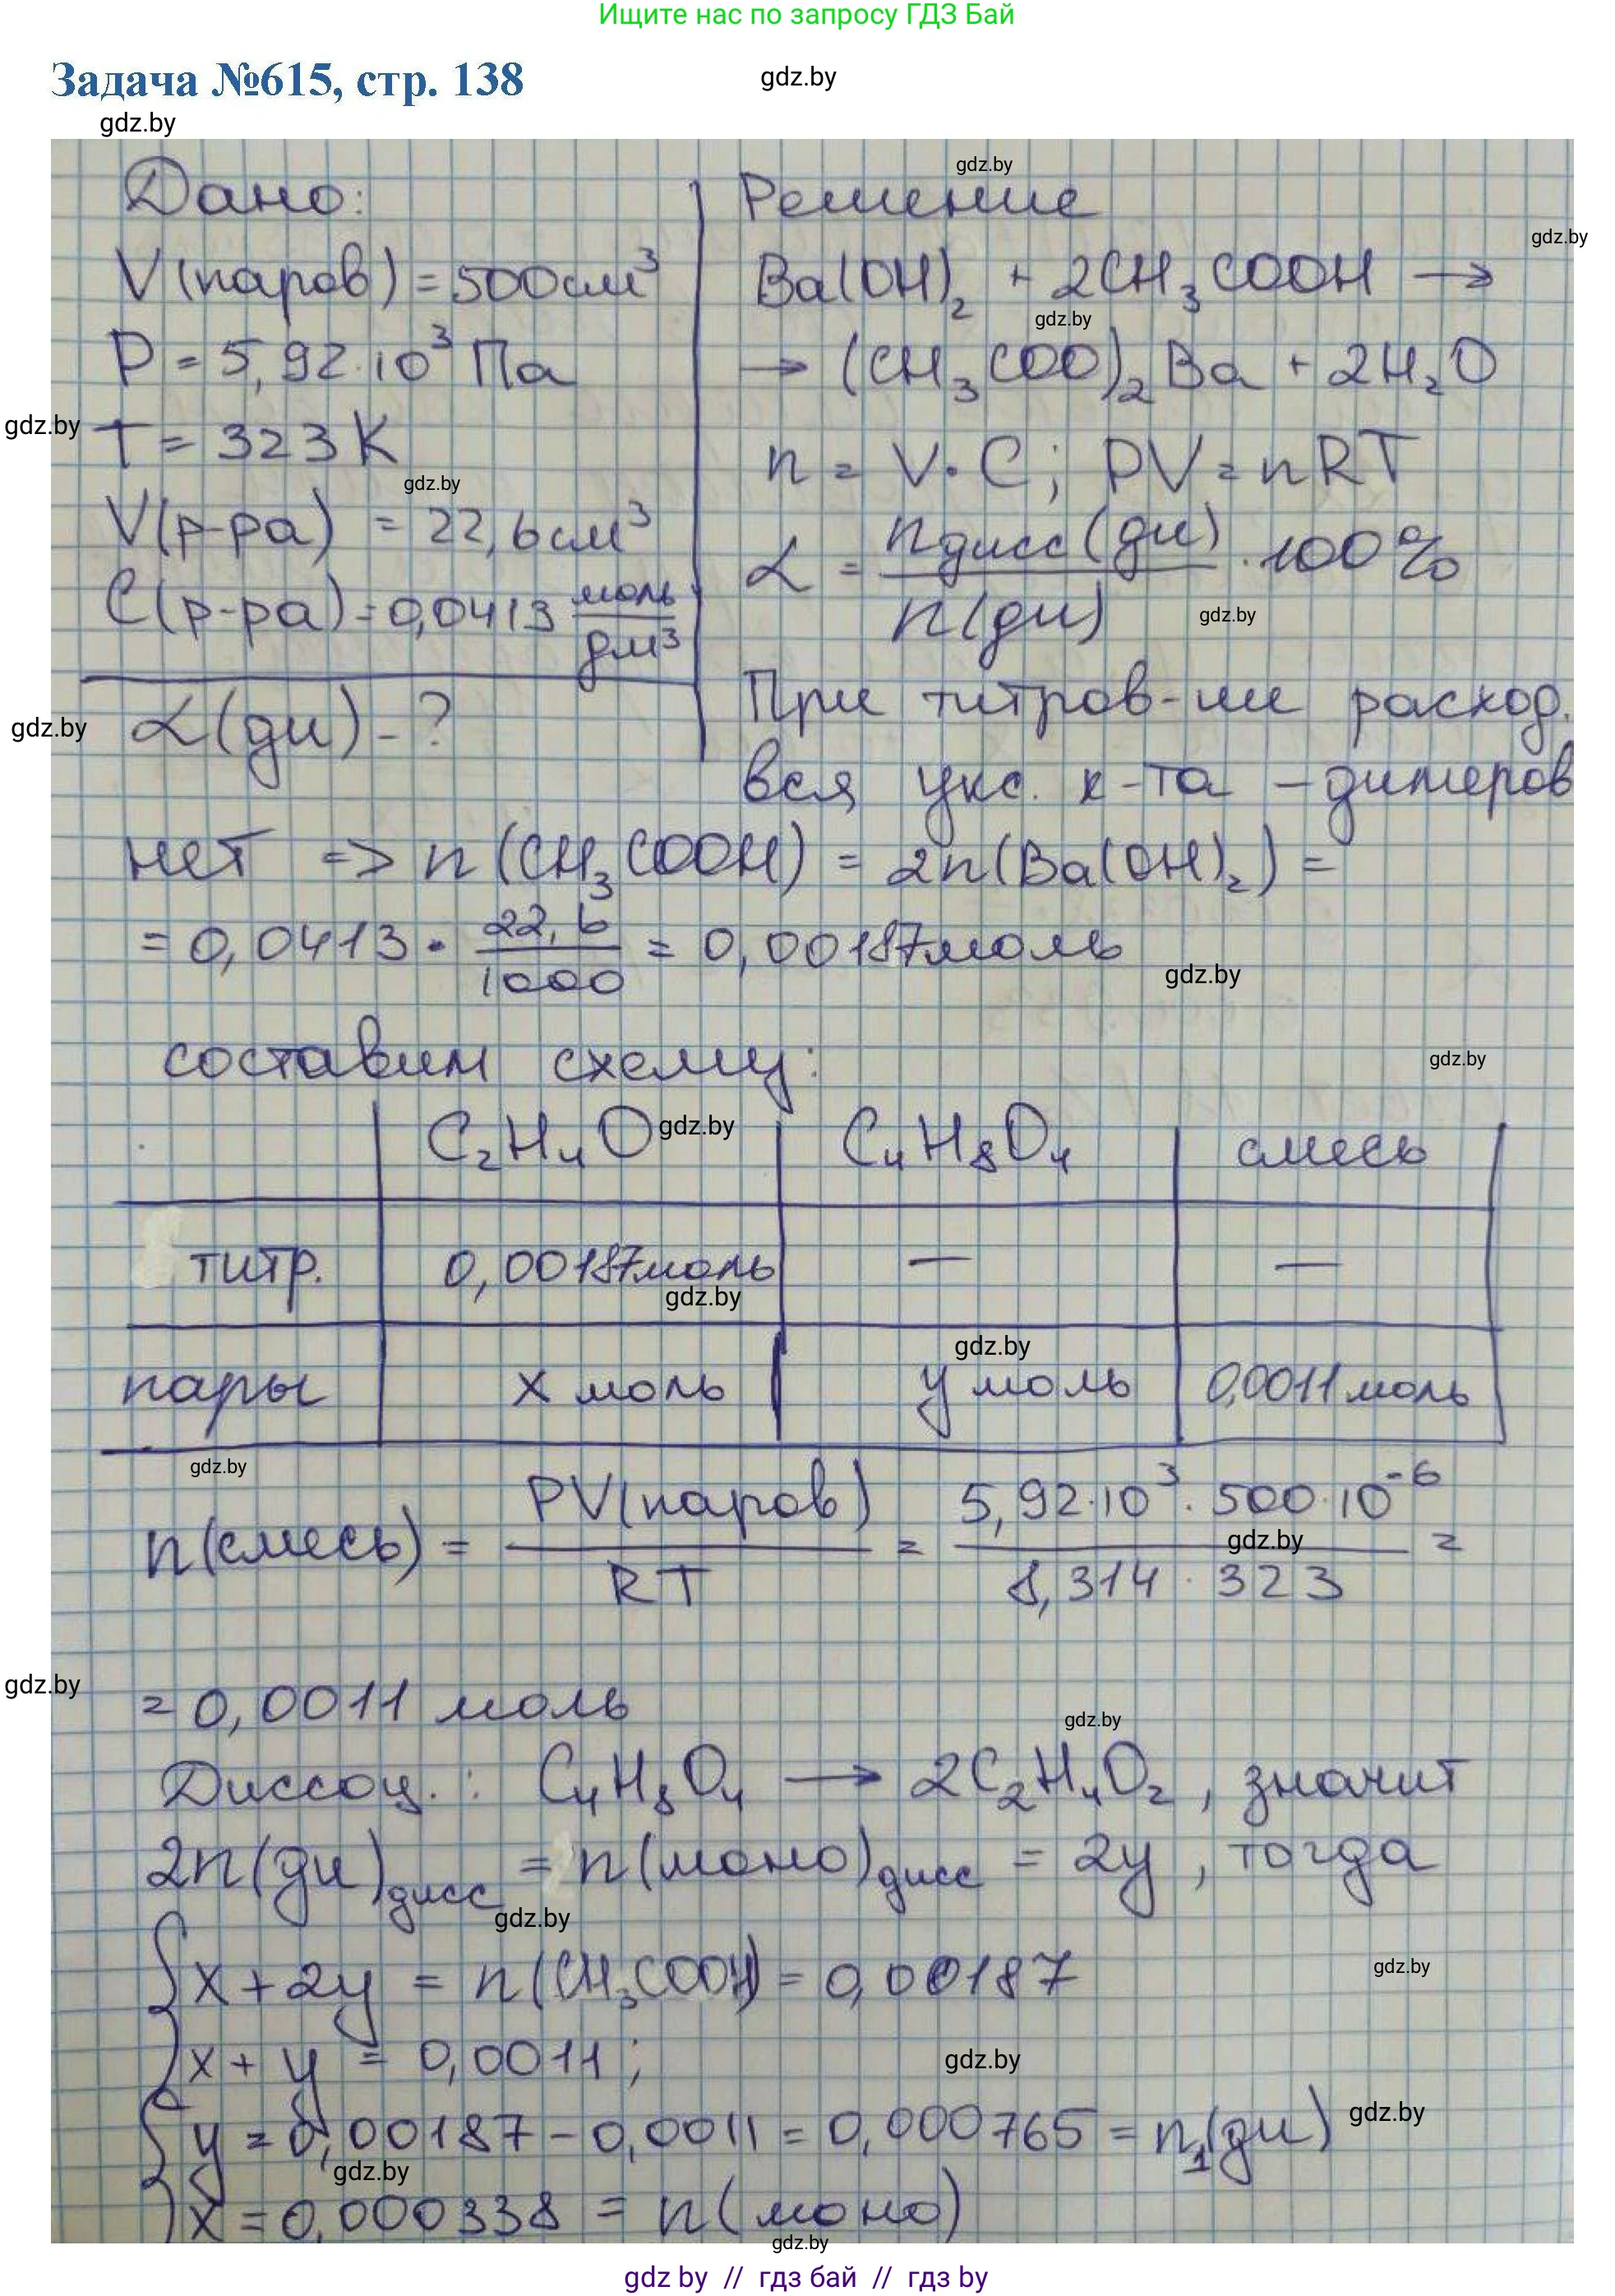 Ищите нас по запросу ГДЗ Бай
Задача №615, стр. 138
gdz.by
gdz.by
Дано:
V(паров) = 500см³
P = 5,92·10³ Па
T = 323 K
V(р-ра) = 22,6см³
C(р-ра) = 0,0413 моль/дм³
α(ди) - ?
Решение
Ba(OH)₂ + 2CH₃COOH →
→ (CH₃COO)₂Ba + 2H₂O
n = V·C; PV = nRT
α = nдисс(ди)/n(ди) · 100%
При титров-ии расход.
вся укс. к-та - димеров
нет => n(CH₃COOH) = 2n(Ba(OH)₂) =
= 0,0413 · 22,6/1000 = 0,00187моль
составим схему:
C₂H₄O C₄H₈O₄ смесь
титр. 0,00187моль — —
пары x моль y моль 0,0011моль
n(смесь) = PV(паров)/RT = 5,92·10³·500·10⁻⁶/8,314·323 =
= 0,0011 моль
Диссоц.: C₄H₈O₄ → 2C₂H₄O₂, значит
2n(ди)дисс = n(моно)дисс = 2y, тогда
x + 2y = n(CH₃COOH) = 0,00187
x + y = 0,0011;
y = 0,00187 - 0,0011 = 0,000765 = n₁(ди)
x = 0,000338 = n(моно)
gdz.by
gdz by // гдз бай // гдз by